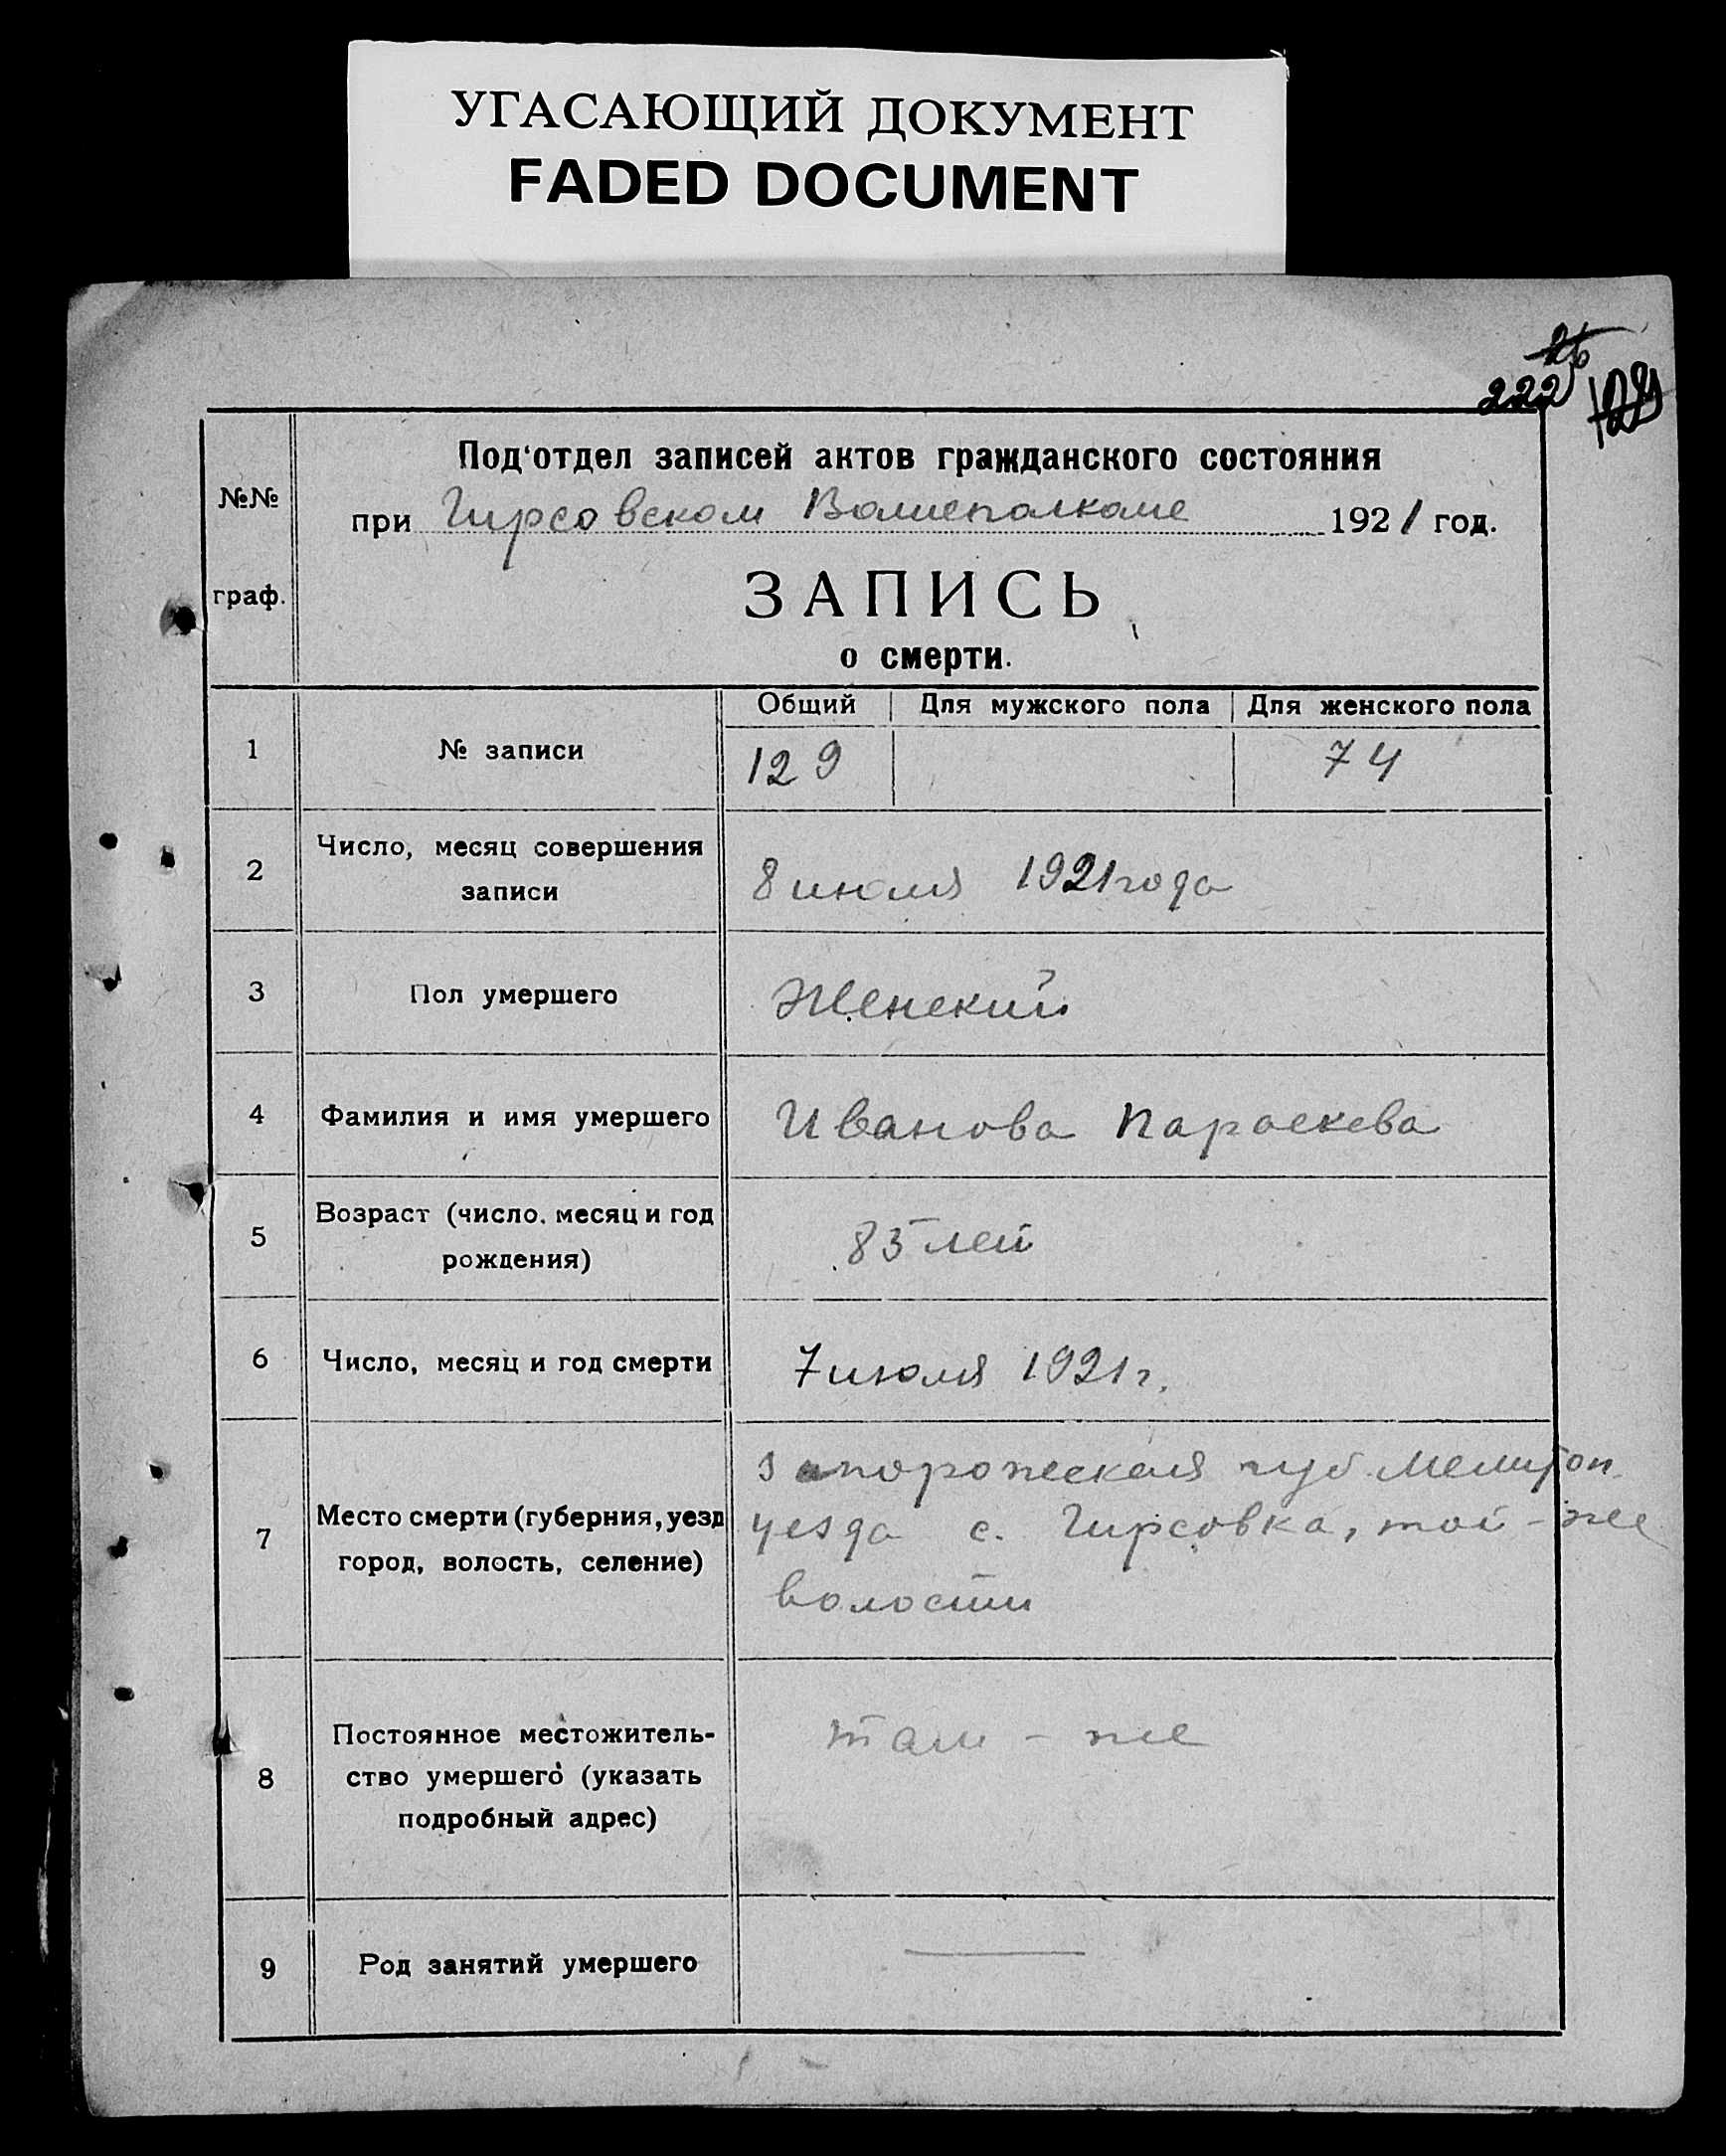 УГАСАЮЩИЙ ДОКУМЕНТ
FADED DOCUMENT
26
222
129
№№
граф.
Под'отдел записей актов гражданского состояния
при Гирсовском Волисполкоме 1921 год.
ЗАПИСЬ
о смерти.
Общий Для мужского пола Для женского пола
1 № записи 129 74
2 Число, месяц совершения
записи
8 июля 1921 года
3 Пол умершего Женский
4 Фамилия и имя умершего Иванова Параскева
5 Возраст (число, месяц и год
рождения)
85 лет
6 Число, месяц и год смерти 7 июля 1921 г.
7 Место смерти (губерния, уезд
город, волость, селение)
Запорожская губ. Мелитоп.
уезда с. Гирсовка, той-же
волости
8 Постоянное местожитель-
ство умершего (указать
подробный адрес)
там-же
9 Род занятий умершего